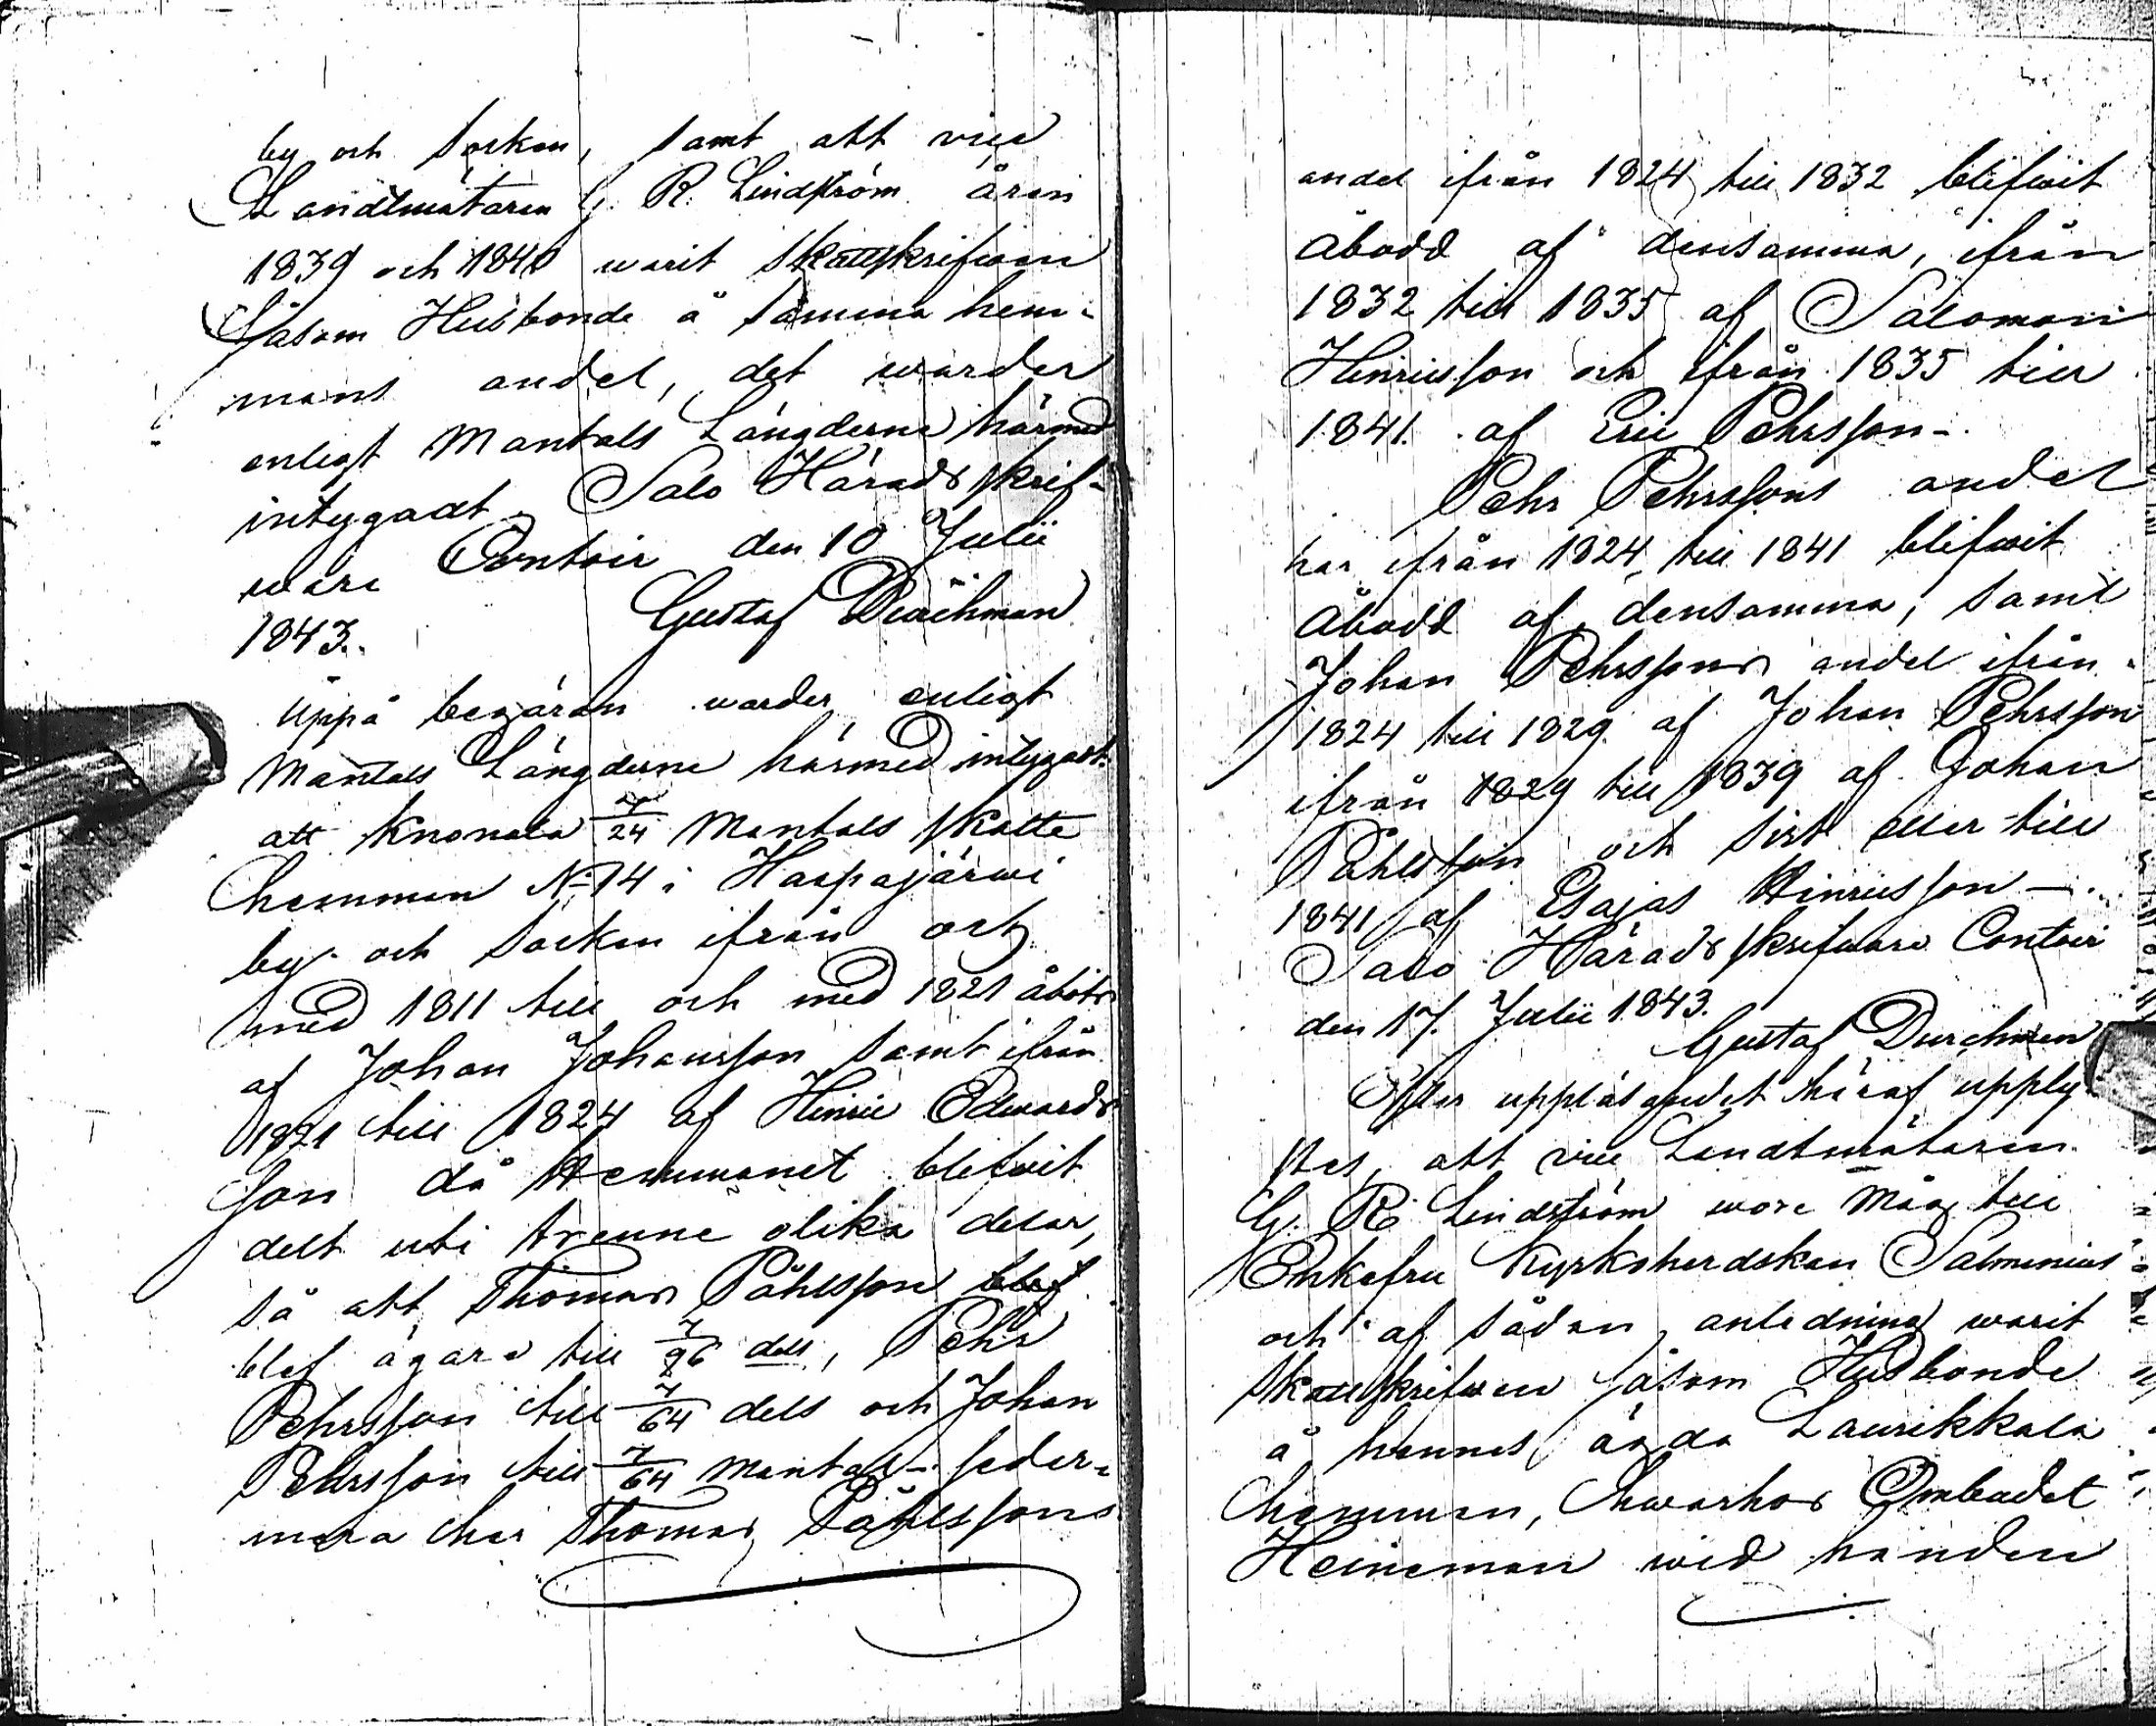 by och Socken, samt att vice
Landtmätaren G. R. Lindström åren
1839 och 1840 warit Skattskrifven
såsom Husbonde å samma hem-
mans andel, det warder
enligt Mantals Längderne härmed
intygadt. Salo Häradsskrif-
ware Contoir den 10 Julii
1843. Gustaf Durchman
Uppå begäran warder enligt
Mantals Längderne härmed intygadt
att Knonala 7/24 Mantals Skatte
hemman No 14 i Haapajärwi
by och Socken ifrån och
med 1811 till och med 1821 åbots
af Johan Johansson samt ifrån
1821 till 1824 af Hinric Edwards
son då Hemmanet blefwit
delt uti trenne olika delar,
så att Thomas Påhlsson blef
blef ägare till 7/96 dels, Pehr
Pehrsson till 7/64 dels och Johan
Pehrsson till 7/64 mantal - seder-
mera har Thomas Påhlssons
andel ifrån 1824 till 1832 blifwit
åbodd af densamma, ifrån
1832 till 1835 af Salomon
Hinricsson och ifrån 1835 till
1841 af Eric Pehrsson -
Pehr Pehrssons andel
har ifrån 1824, till 1841 blifwit
åbodd af densamma, samt
Johan Pehrssons andel ifrån
1824 till 1829 af Johan Pehrsson
ifrån 1829 till 1839 af Johan
Påhlsson och sist eller till
1841 af Esajas Hinricsson -
Salo Häradsskrifware Contoir
den 17. Julii 1843.
Gustaf Durchman
Efter uppläsandet häraf upply-
stes, att vice Landtmätaren
G. R. Lindström wore Måg till
Enkefru Kyrkoherdskan Salmenius
och af sådan anledning warit
skattskrifwen såsom Husbonde
å hennes ägda Laurikkala
hemman, hwarhos Ombudet
Heineman wid handen